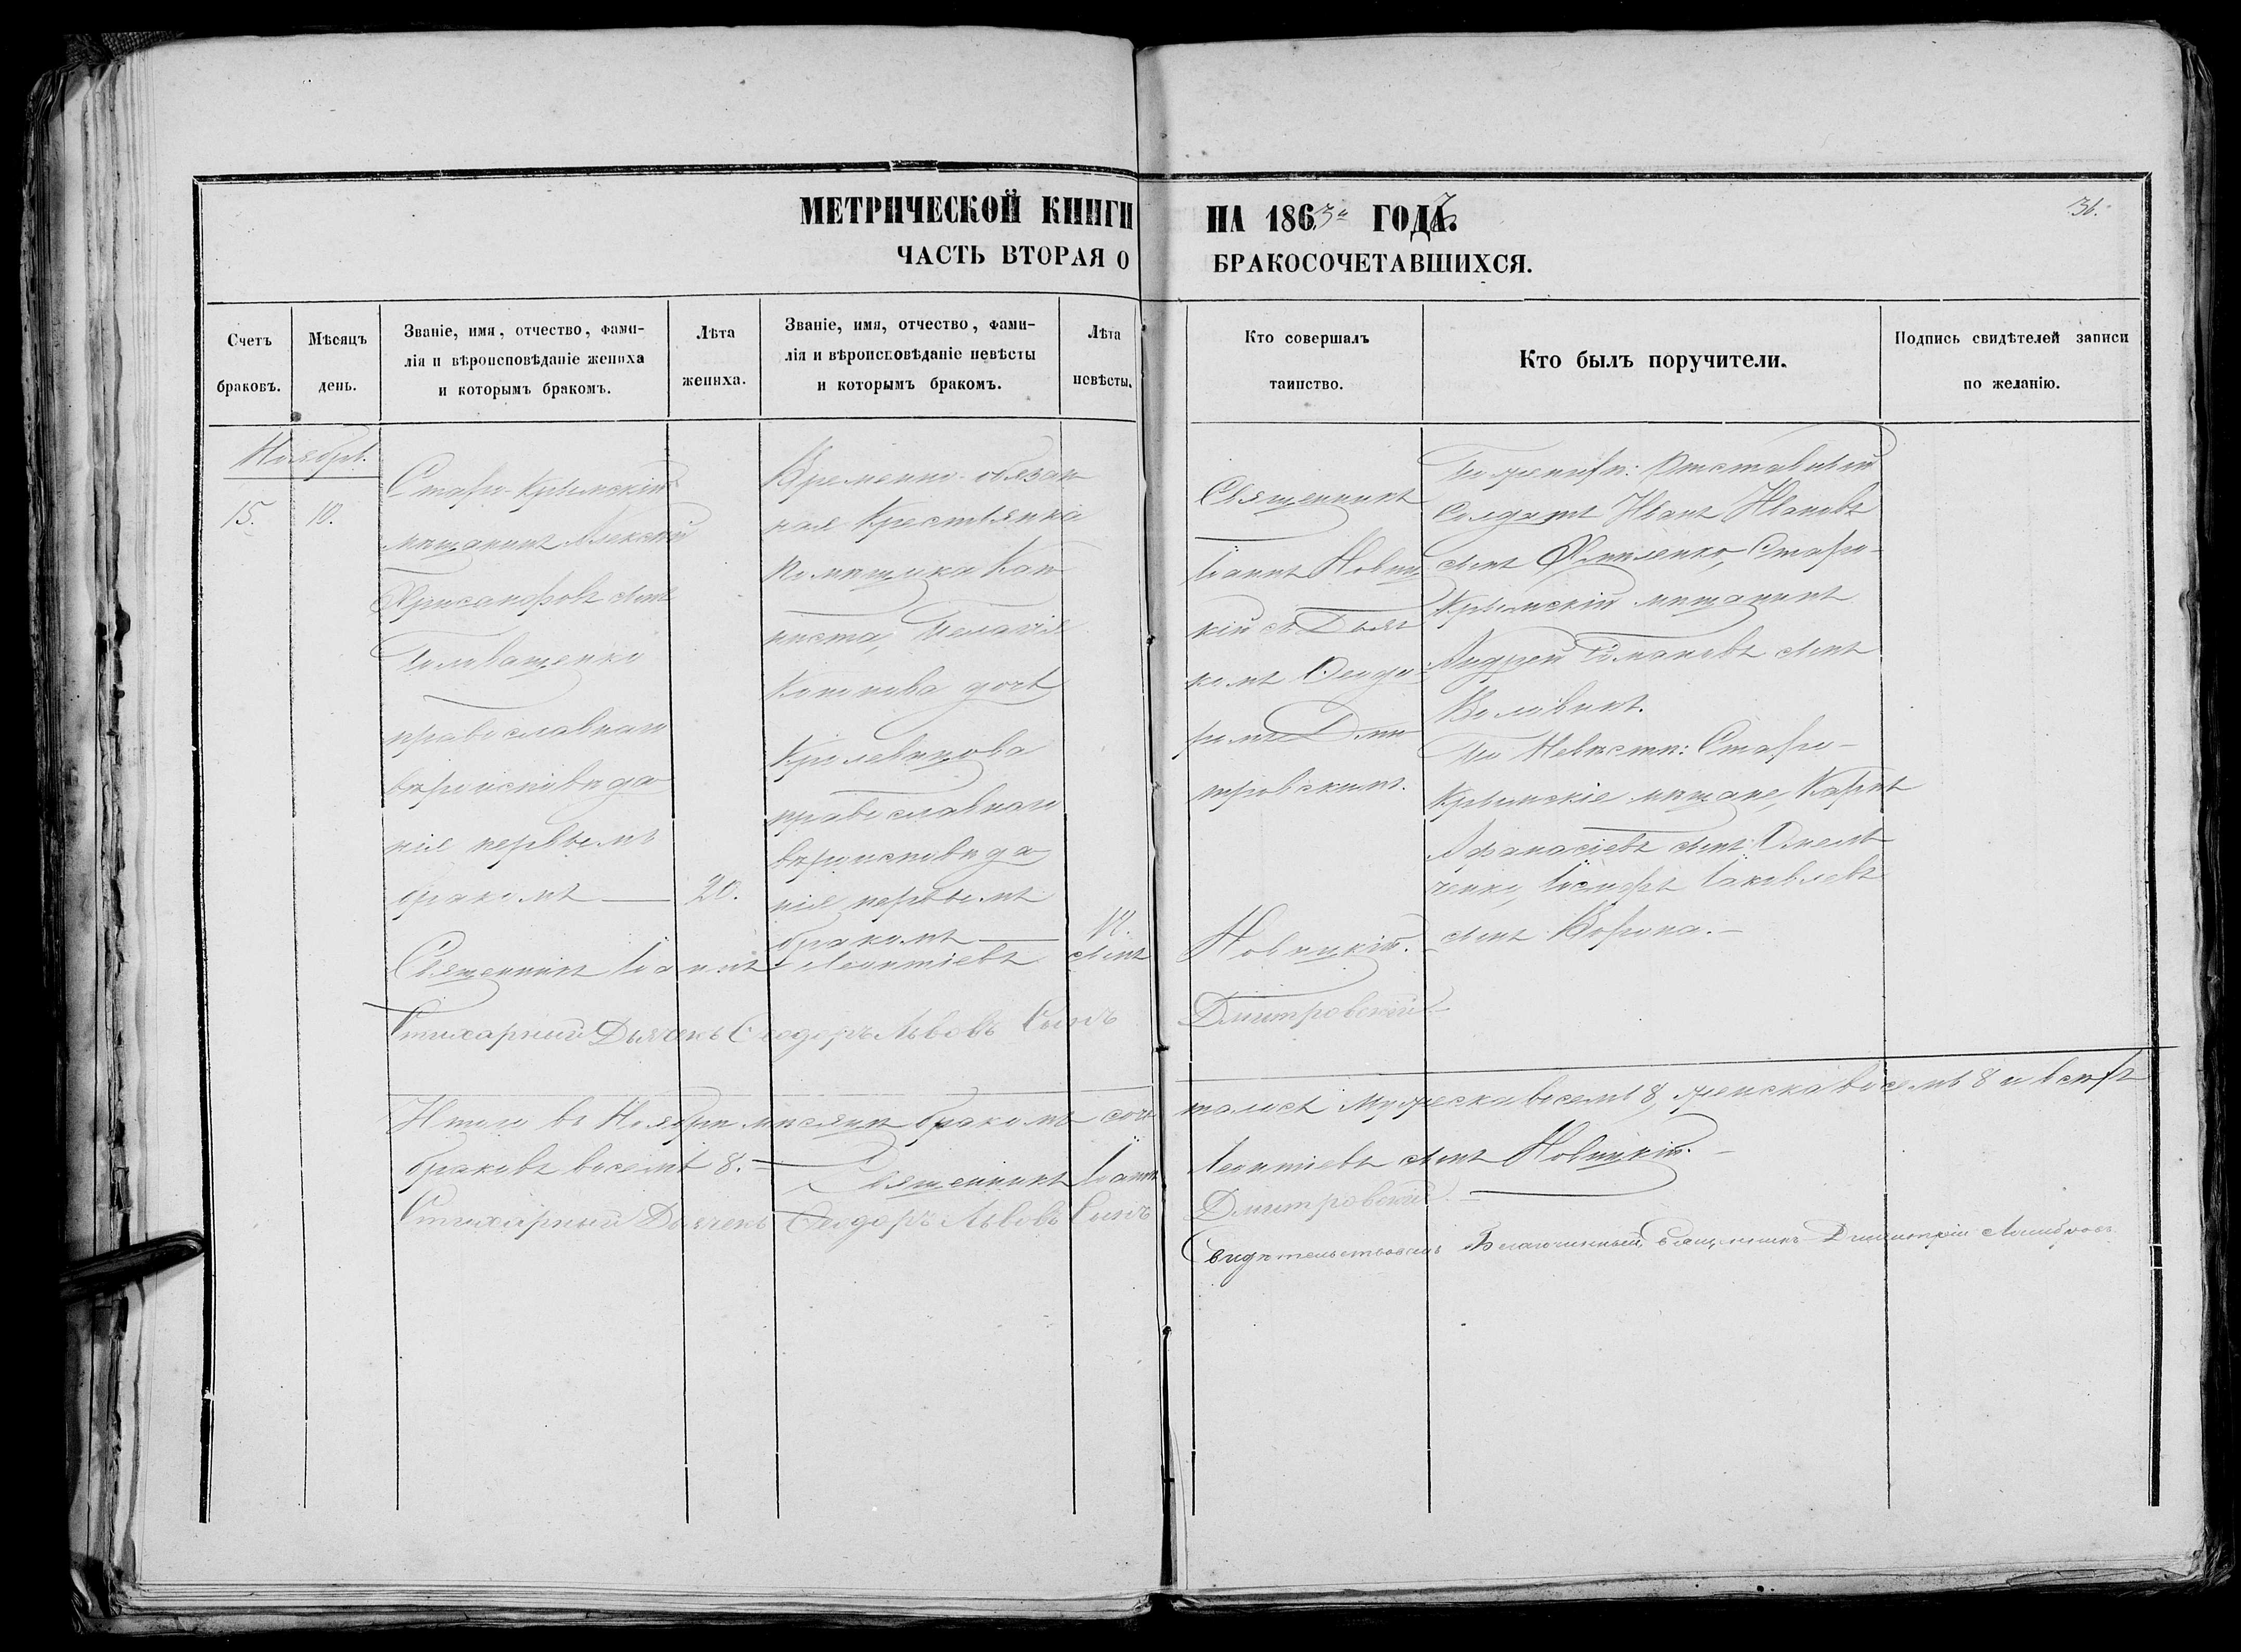 МЕТРИЧЕСКОЙ КНИГИ НА 1863го ГОДА.
36.
ЧАСТЬ ВТОРАЯ О БРАКОСОЧЕТАВШИХСЯ.
Счетъ браковъ.
Мѣсяцъ день.
Званіе, имя, отчество, фами-
лія и вѣроисповѣданіе жениха
и которымъ бракомъ.
Лѣта жениха.
Званіе, имя, отчество, фами-
лія и вѣроисповѣданіе невѣсты
и которымъ бракомъ.
Лѣта невѣсты.
Кто совершалъ
таинство.
Кто былъ поручители.
Подпись свидѣтелей записи
по желанію.
Ноябрь.
15.
10.
Старо-Крымскій
мѣщанинъ Алексѣй
Хрисанфовъ сынъ
Головащенко
православнаго
вѣроисповѣда
нія первымъ
бракомъ — 20.
Временно-обязан
ная Крестьянка
помѣщика Кап
ниста, Пелагія
Кононова дочь
православнаго
вѣроисповѣда
нія первымъ
бракомъ —
Священникъ
Іоаннъ Новиц
кій съ Дьяч
комъ Ѳеодо-
ромъ Дми
тровскимъ.
По женихѣ: Отставный
Солдатъ Иванъ Ивановъ
сынъ Филипенко, Старо-
Крымскій мѣщанинъ
Андрей Романовъ сынъ
По Невѣстѣ: Старо-
Крымскіе мѣщане, Карпъ
Афанасіевъ сынъ Омель
ченко, Іосифъ Іаковлевъ
сынъ Ворона.—
Священникъ Іоаннъ Леонтіевъ сынъ Новицкій.
Стихарный Дьячекъ Ѳеодоръ Львовъ Сынъ Дмитровскій
Итого въ Ноябрѣ мѣсяцѣ бракомъ соче талось мужеска восемь 8, женска восемь 8 и всѣхъ
браковъ восемь 8.— Священникъ Іоаннъ Леонтіевъ сынъ Новицкій.—
Стихарный Дьячекъ Ѳеодоръ Львовъ Сынъ Дмитровскій.—
Свидѣтельствовалъ Благочинный, Священникъ Димитрій